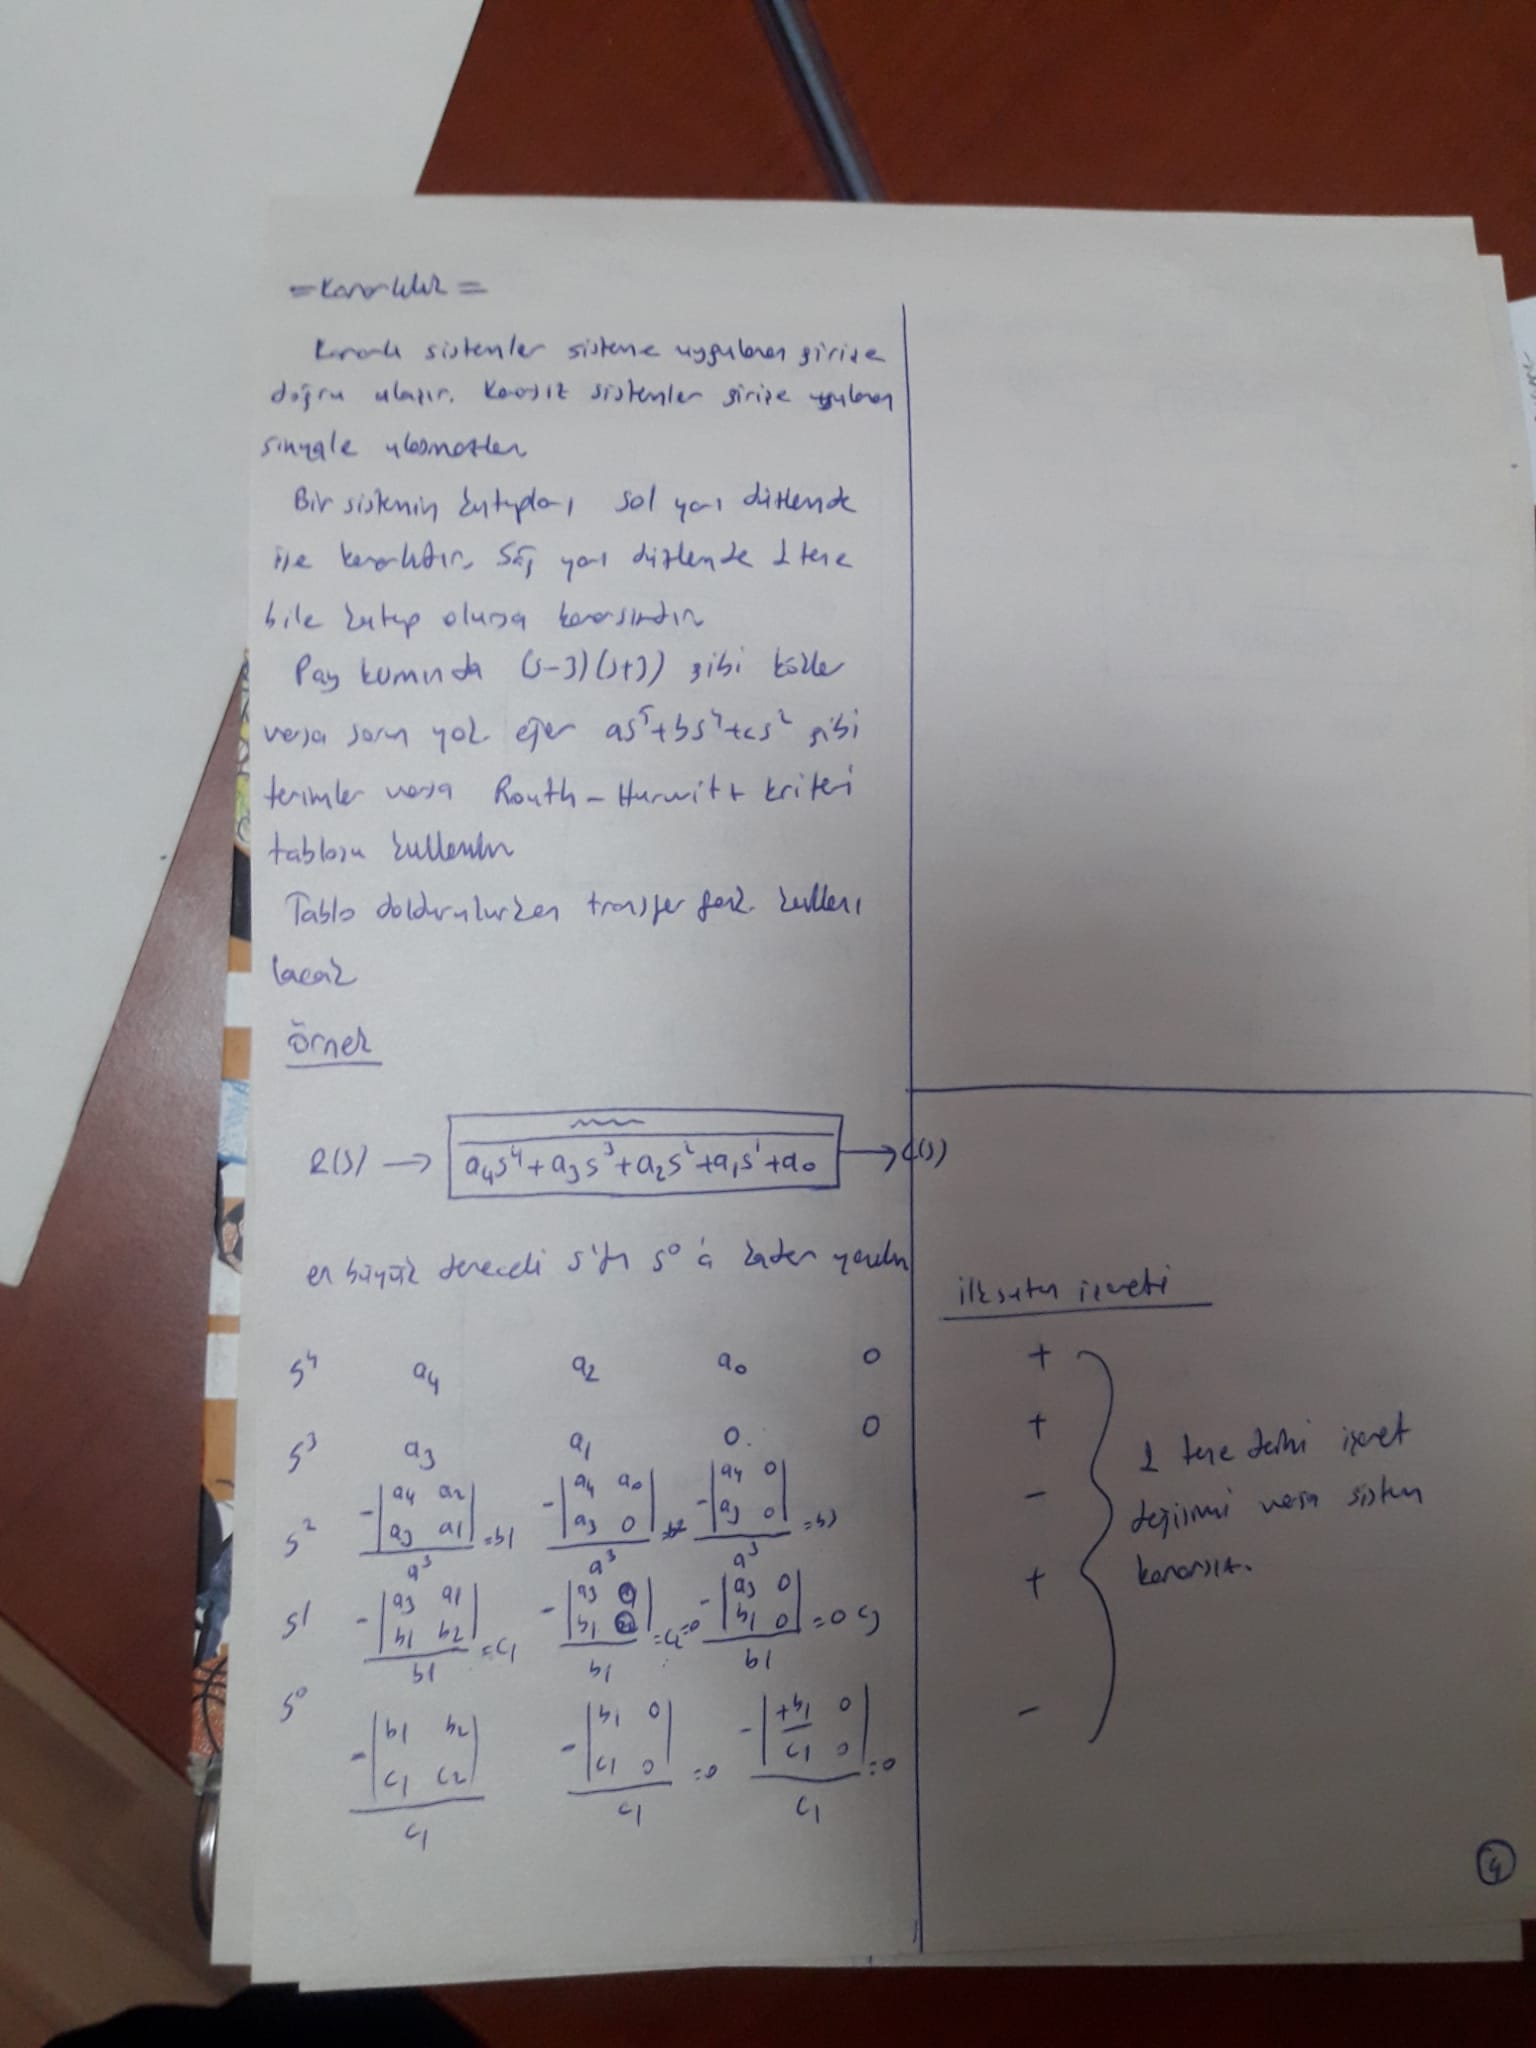 = Kararlılık =
Kararlı sistemler sisteme uygulanan girişe
doğru ulaşır. Kararsız sistemler girişe uygulanan
sinyale ulaşmazlar
Bir sistemin kutupları sol yarı düzlemde
ise kararlıdır. Sağ yarı düzlemde 1 tane
bile kutup olursa kararsızdır
Pay kısmında (s-3)(s+3) gibi kökler
varsa sorun yok eğer as⁵+bs⁴+cs² gibi
terimler varsa Routh-Hurwitz kriteri
tablosu kullanılır
Tablo doldurulurken transfer fonk. kullanı
lacak
Örnek
R(s) → a₄s⁴+a₃s³+a₂s²+a₁s¹+a₀ → C(s)
en büyük dereceli s'den s⁰'a kadar yazılır
s⁴ a₄ a₂ a₀ 0
s³ a₃ a₁ 0. 0
s² -|a₄ a₂; a₃ a₁|/a³ =b1 -|a₄ a₀; a₃ 0|/a³ =b2 -|a₄ 0; a₃ 0|/a³ =b3
s¹ -|a₃ a₁; b₁ b₂|/b1 =c₁ -|a₃; b₁|/b₁ =0 -|a₃ 0; b₁ 0|/b1 =0 c3
s⁰ -|b₁ b₂; c₁ c₂|/c₁ -|b₁ 0; c₁ 0|/c₁ =0 -|+b₁ 0; c₁ 0|/c₁ =0
ilk sutun işareti
+
+
-
+
-
1 tane dahi işaret
değişimi varsa sistem
kararsız.
4